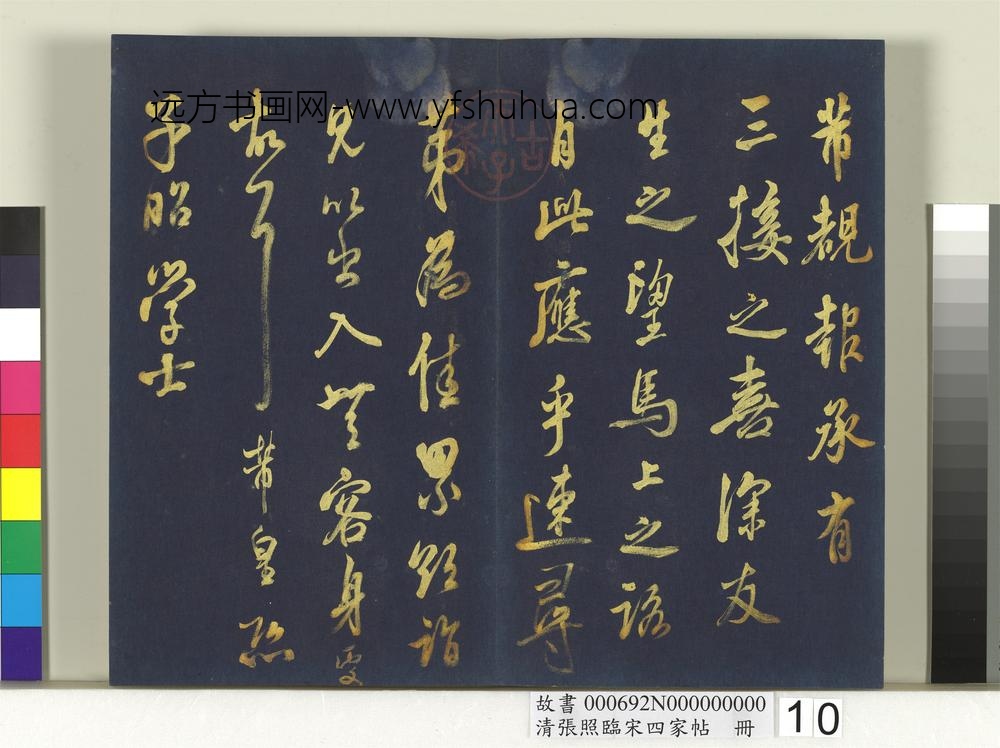 远方书画网-www.yfshuhua.com
芾覩報承有
三接之喜深友
生之望馬上之
有此應乎速尋
第為佳累欲詣
見以出入無客身
故耳 芾皇恐
子昭學士
故書 000692N000000000
清張照臨宋四家帖 冊
10